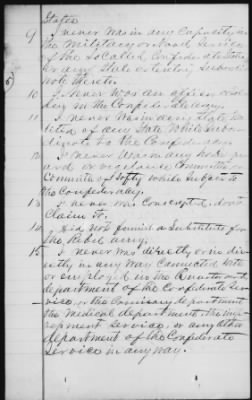 States
9 I never was in any capacity in
the Military or Naval Service
of the So Called Confederate States
or any State or territory subordi-
nate thereto.
10 I never was an officer or sol-
dier in the Confederacy.
11 I never was in any State
of any State while Subor-
dinate to the Confederacy.
12 I never was in any home gu-
ard or vigilance Committee or
Committee of Safty while Subject to
the Confederacy.
13 I never was Conscripted, dont
Claim it.
14 Did not furnish a Substitute for
the Rebel army.
15 I never was directly or in di-
rectly in any way Connected with
or employed in the Quarter masters
department of the Confederate Ser-
vice, or the Comissary department
the Medical department, the Im-
pressment Service, or any other
department of the Confederate
Service in any way.